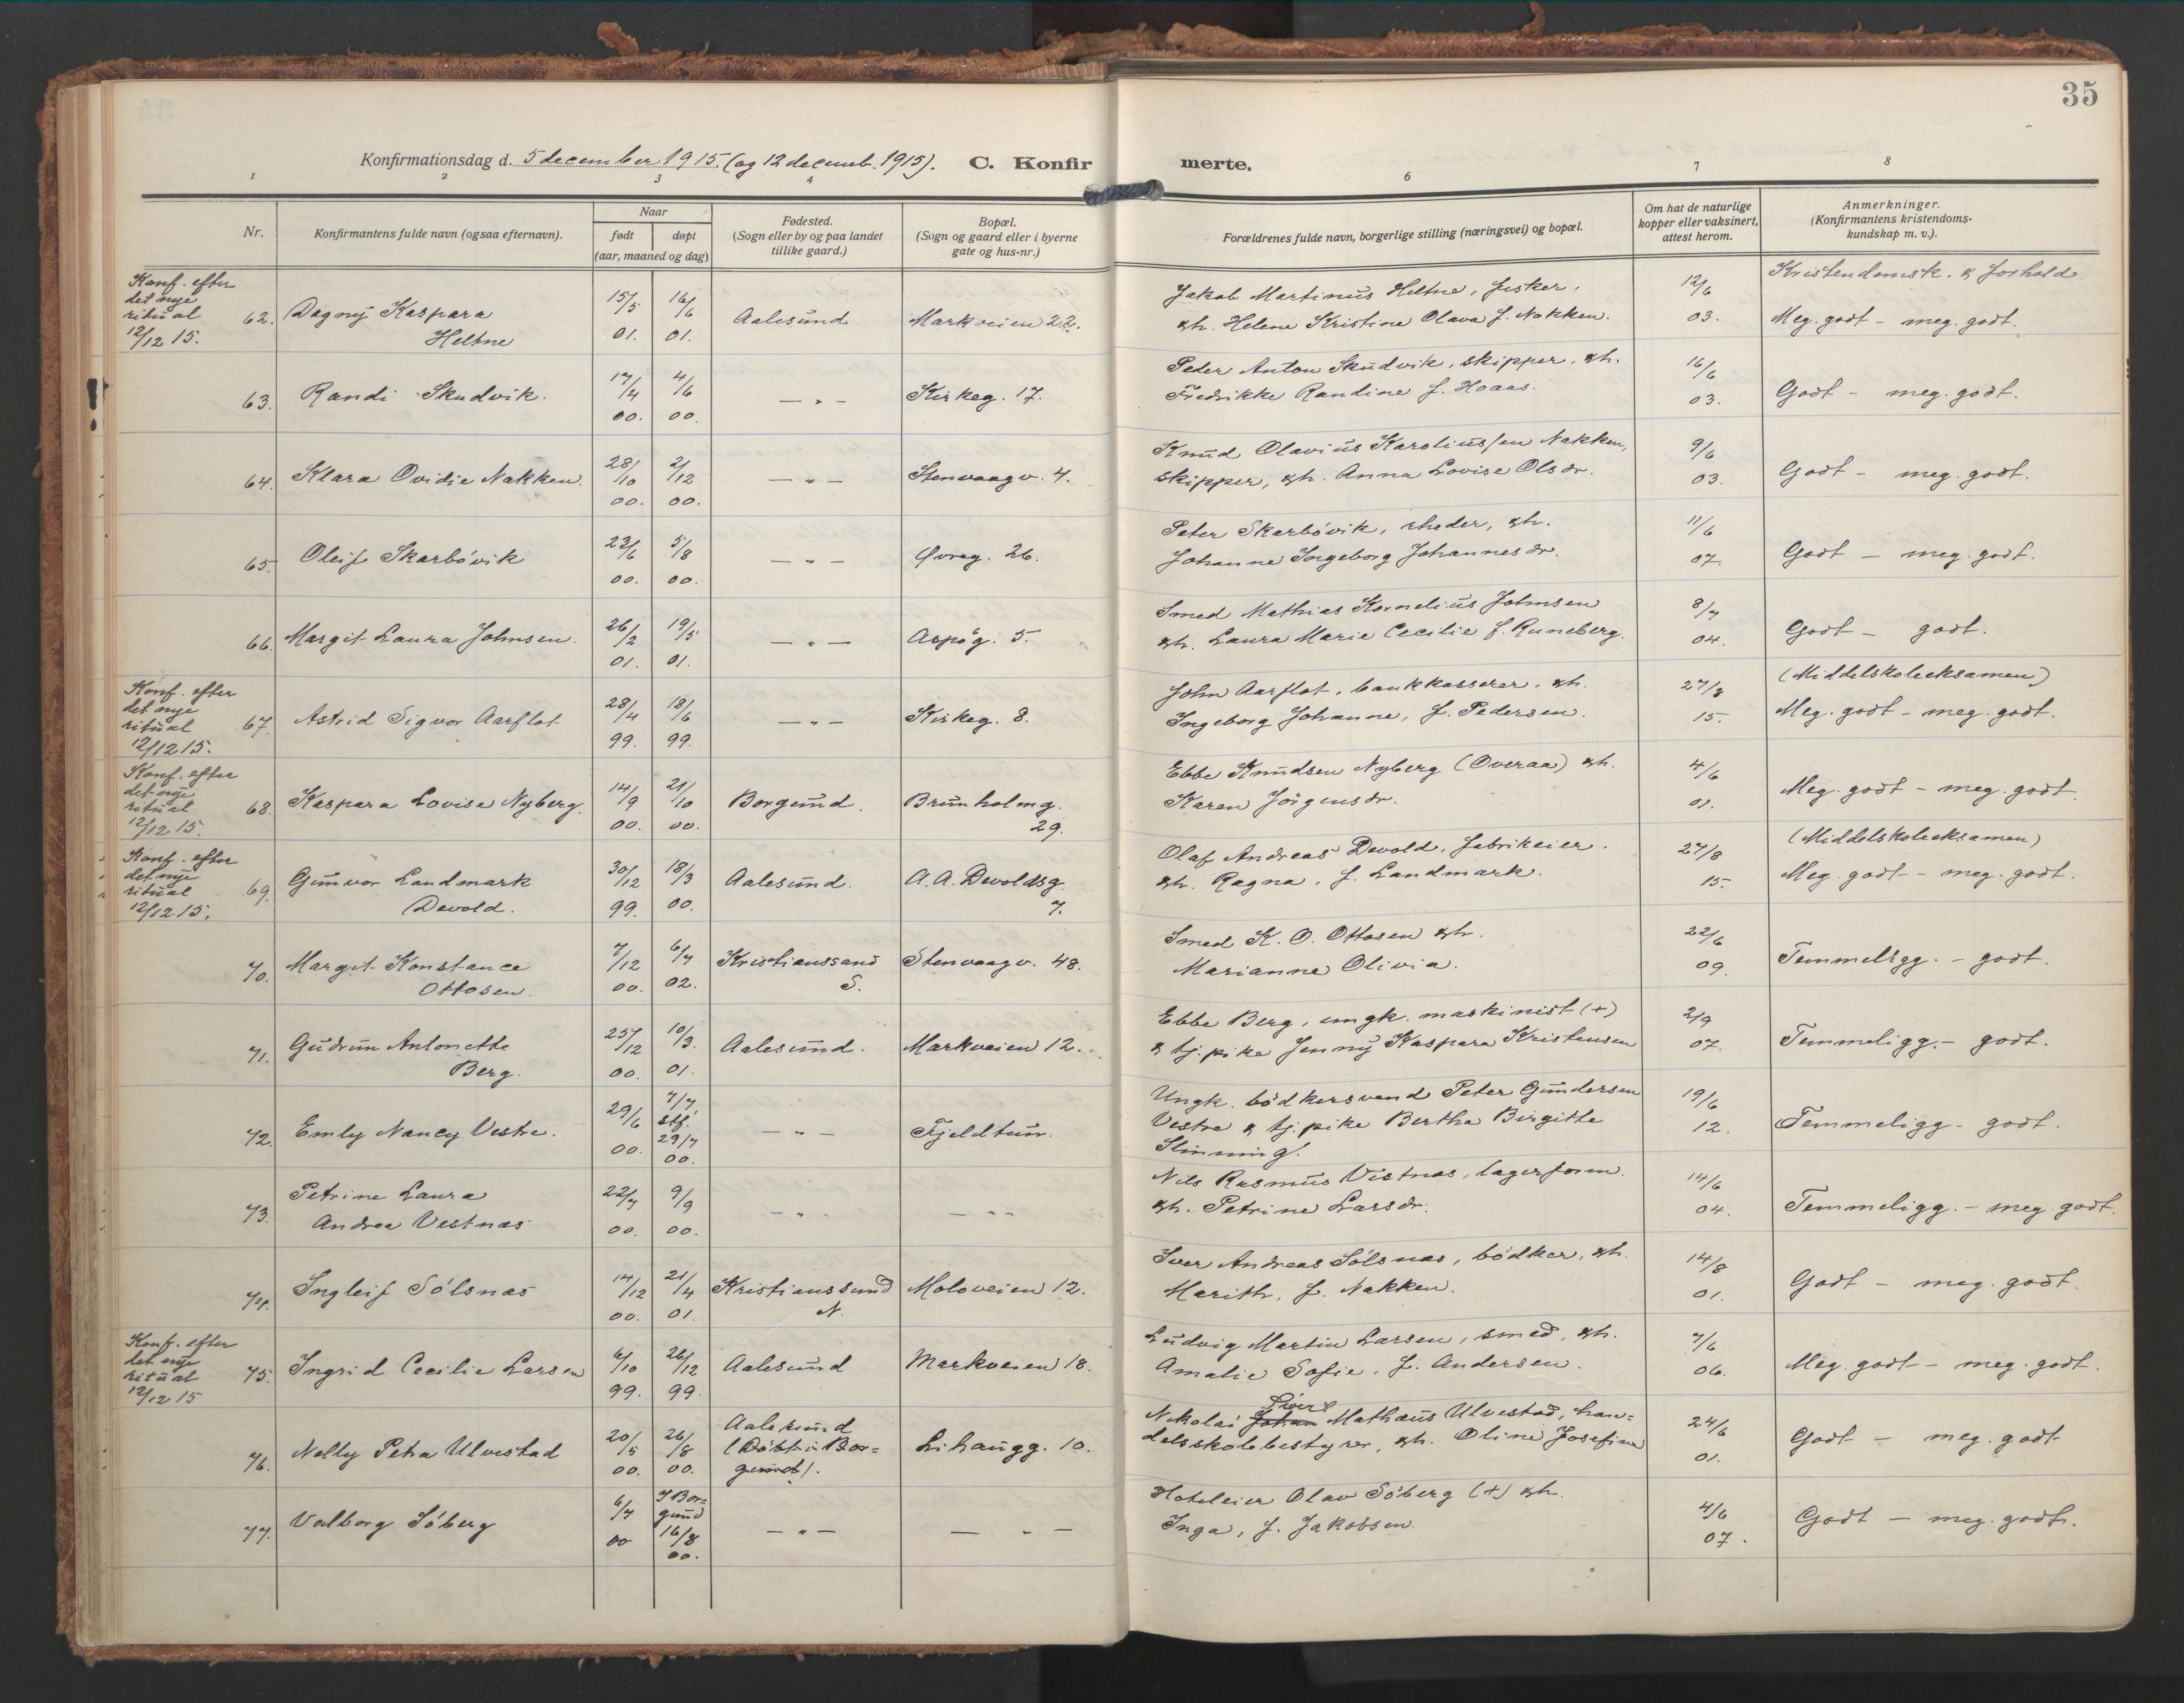 35
Konfirmationsdag d. 5 december 1915. (og 12 decemb. 1915). C. Konfir merte.
1 2 3 4 6 7 8
Nr.
Konfirmantens fulde navn (ogsaa efternavn).
Naar
født døpt
(aar, maaned og dag)
Fødested.
(Sogn eller by og paa landet
tillike gaard.)
Bopæl.
(Sogn og gaard eller i byerne
gate og hus-nr.)
Forældrenes fulde navn, borgerlige stilling (næringsvei) og bopæl.
Om hat de naturlige
kopper eller vaksinert,
attest herom.
Anmerkninger.
(Konfirmantens kristendoms-
kundskap m. v.).
Kristendomsk. & forhold.
Konf. efter
det nye
ritual
12/12 15.
62. Dagny Kaspara
Heltne
15/5 01. 16/6 01. Aalesund Markveien 22.
Jakob Martinus Heltne, fisker,
& h. Helene Kristine Olava f. Nakken.
12/6 03. Meg. godt - meg. godt.
63. Randi Skudvik. 17/4 00. 4/6 00. — " — Kirkeg. 17.
Peder Anton Skudvik, skipper, & h.
Fredrikke Randine f. Hoaas.
16/6 03. Godt - meg. godt.
64. Klara Ovidie Nakken. 28/10 00. 2/12 00. — " — Stenvaagv. 4.
Knud Olavius Karoliussen Nakken,
skipper, & h. Anna Lovise Olsdr.
9/6 03. Godt - meg. godt.
65. Oleif Skarbövik 23/6 00. 5/8 00. — " — Øvreg. 26.
Peter Skarbövik, rheder, & h.
Johanne Ingeborg Johannesdr.
11/6 07. Godt — meg. godt.
66. Margit Laura Johnsen. 26/2 01. 19/5 01. — " — Aspög. 5.
Smed Mathias Kornelius Johnsen
& h. Laura Marie Cecilie f. Runeberg.
8/7 04. Godt - godt.
Konf. efter
det nye
ritual
12/12 15.
67. Astrid Sigvor Aarflot 28/4 99. 18/6 99. — " — Kirkeg. 8.
John Aarflot, bankkasserer, & h.
Ingeborg Johanne, f. Pedersen.
27/8 15. (Middelskoleeksamen)
Meg. godt - meg. godt.
Konf. efter
det nye
ritual
12/12 15.
68. Kaspara Lovise Nyberg. 14/9 00. 21/10 00. Borgund. Brunholmg.
29.
Ebbe Knudsen Nyberg (Overaa) & h.
Karen Jörgensdr.
4/6 01. Meg. godt - meg. godt.
Konf. efter
det nye
ritual
12/12 15.
69. Gunvor Landmark
Devold.
30/12 99. 18/3 00. Aalesund. A. A. Devoldsg.
7.
Olaf Andreas Devold, fabrikeier.
& h. Ragna, f. Landmark.
27/8 15. (Middelskoleeksamen)
Meg. godt - meg. godt.
70. Margit Konstance
Ottosen.
7/12 00. 6/7 02. Kristianssand
S.
Stenvaagv. 48.
Smed K. O. Ottosen & h.
Marianne Olivia.
22/6 09. Temmeligg. - godt.
71. Gudrun Antonette
Berg.
25/12 00. 10/3 01. Aalesund. Markveien 12.
Ebbe Berg, ungk. maskinist (+)
& tj.pike Jenny Kaspara Kristensen
2/9 07. Temmeligg. - godt.
72. Emly Nancy Vestre. 29/6 00. 7/7, stf. 29/7 00. — " — Fjeldtun.
Ungk. bödkersvend Peter Gundersen
Vestre & tj.pike Bertha Birgitte
Slinning.
19/6 12. Temmeligg - godt.
73. Petrine Laura
Andrea Vestnas
22/7 00. 9/9 00. — " — — " —
Nils Rasmus Vistnas, lagerform.
& h. Petrine Larsdr.
14/6 04. Temmeligg. - meg. godt.
74. Ingleif Sölsnas 14/12 00. 21/4 01. Kristianssund
N.
Moloveien 12.
Iver Andreas Sölsnas, bödker, & h.
Marith, f. Nakken.
14/8 01. Godt - meg. godt.
Konf. efter
det nye
ritual
12/12 15
75. Ingrid Cecilie Larsen 6/10 99. 26/12 99. Aalesund Markveien 18.
Ludvig Martin Larsen, smed, & h.
Amalie Sofie, f. Andersen.
7/6 06. Meg. godt - meg. godt.
76. Nelly Petra Ulvestad 20/5 00. 26/8 00. Aalesund
(Döbt i Bor=
gund).
Lihaugg. 10.
Nikolai Johan Mathæus Ulvestad, han=
delsskolebestyrer, & h. Oline Josefine
24/6 01. Godt - meg. godt
77. Valborg Söberg 6/7 00 I Bor=
gund
16/8 00. — " — — " —
Hoteleier Olav Söberg (+) & h.
Inga, f. Jakobsen.
4/6 07. Godt - meg. godt.